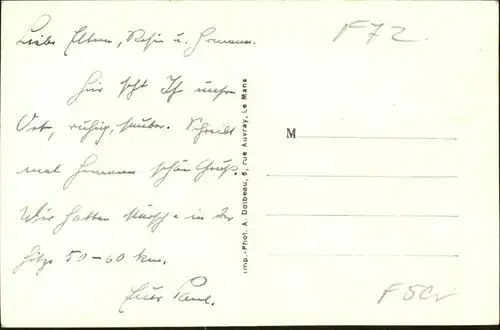 Liebe Eltern, Rosi u. Hermann.
Hier seht Ihr unsern
Ort, ruhig, sauber. Schreibt
mal Hermann schön Gruß.
Wir hatten Marsch in der
Hitze 50-60 km.
Euer Paul.
Imp.-Phot. A. Dolbeau, 6, rue Auvray, Le Mans
F72
M
F5